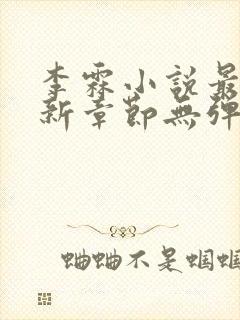 李霖小說最
新章節無彈
蛐蛐不是蝈蝈